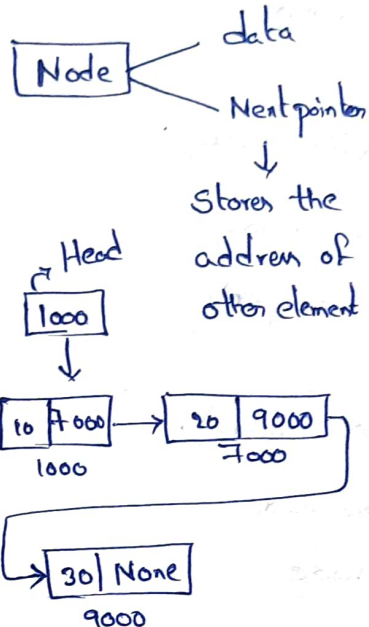 data
Node
Next pointer
Stores the
address of
other element
Head
1000
10 7000
20 9000
1000
7000
30 None
9000